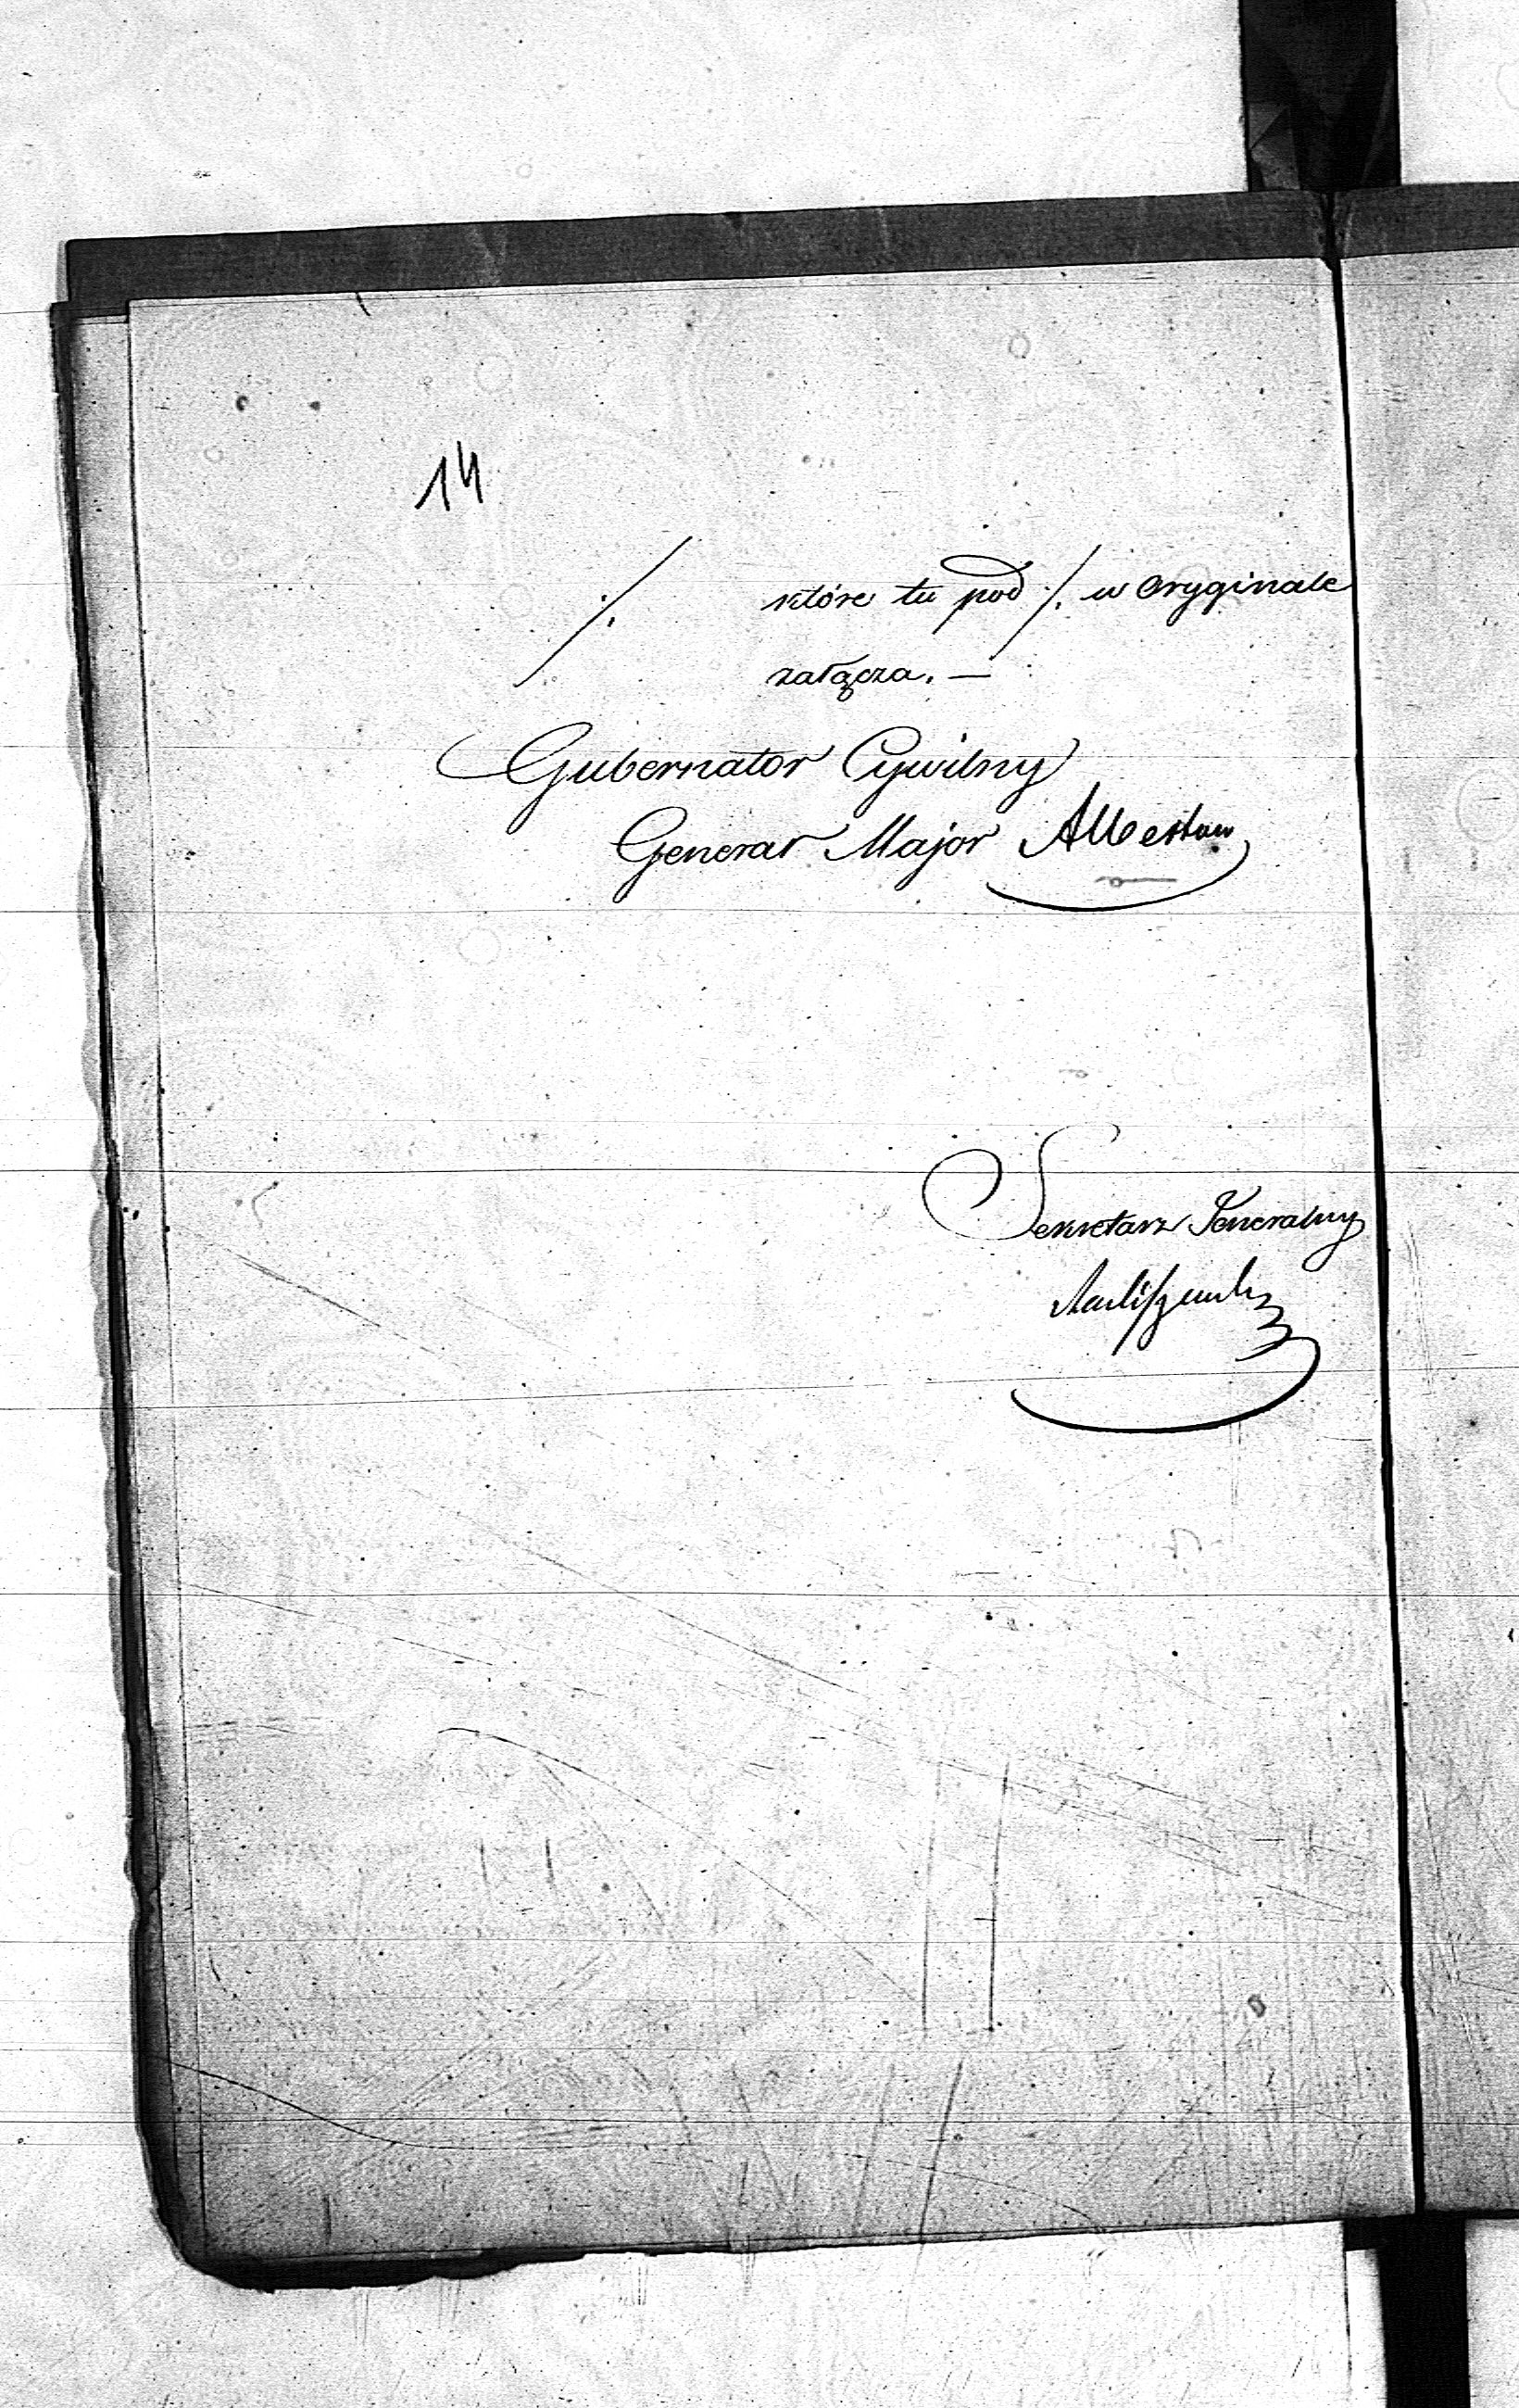 14
./. które tu pod ./. w oryginale
załącza. —
Gubernator Cywilny
Generał Major
Sekretarz Jeneralny